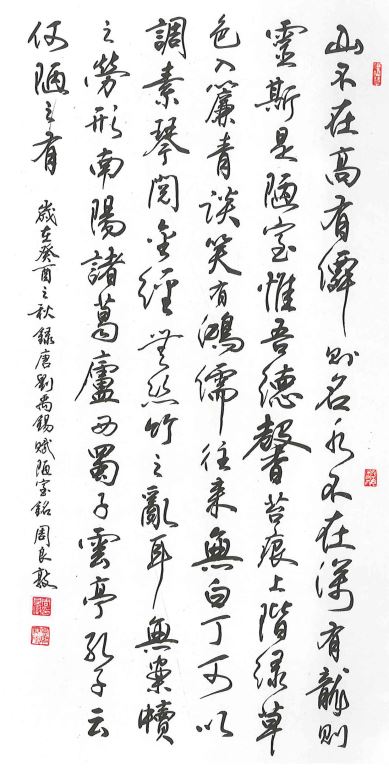 山不在高有僊則名水不在深有龍則
靈斯是陋室惟吾德馨苔痕上階綠草
色入簾青談笑有鴻儒往來無白丁可以
調素琴閱金經無絲竹之亂耳無案牘
之勞形南陽諸葛廬西蜀子雲亭孔子云
何陋之有
歲在癸酉之秋錄唐劉禹錫賦陋室銘周良敦